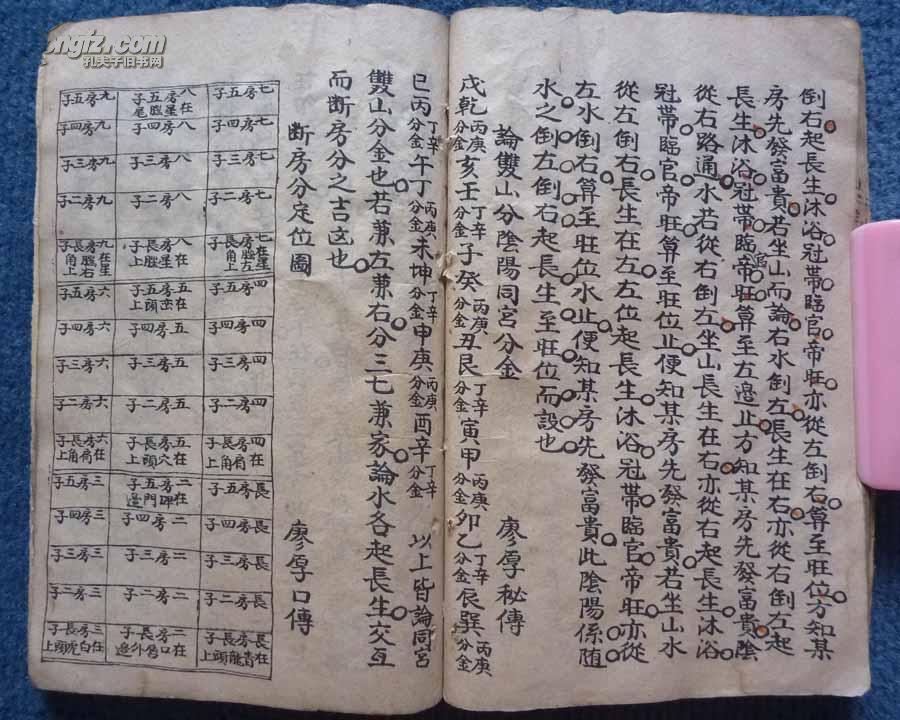 倒右起長生沐浴冠帶臨官帝旺亦從左倒右算至旺位方知某
房先發富貴若坐山而論右水倒左長生在右亦從右倒左起
長生沐浴冠帶臨官帝旺算至左邉止方知某房先發富貴陰
從右路通水若從右倒左坐山長生在右亦從右起長生沐浴
冠帶臨官帝旺算至旺位止便知某房先發富貴若坐山水
從左倒右長生在左左位起長生沐浴冠帶臨官帝旺亦從
左水倒右算至旺位水止便知某房先發富貴此陰陽係随
水之倒左倒右起長生至旺位而設也
論雙山分陰陽同宮分金 廖厚秘傳
戊乾丙庚分金亥壬丁辛分金子癸丙庚分金丑艮丁辛分金寅甲丙庚分金卯乙丁辛分金辰巽丙庚分金
巳丙丁辛分金午丁丙庚分金未坤丁辛分金申庚丙庚分金酉辛丁辛分金 以上皆論同宮
雙山分金也若兼左兼右分三七兼家論水各起長生交互
而断房分之吉凶也
断房分定位圖 廖厚口傳
七房五子 八房五子在星膛尾 九房五子
七房四子 八房四子 九房四子
七房三子 八房三子 九房三子
七房二子 八房二子 九房二子
七房長子在星膛左角上 八房長子在星膛上 九房長子在星膛右角上
四房五子 五房五子在峦頭上 六房五子
四房四子 五房四子 六房四子
四房三子 五房三子 六房三子
四房二子 五房二子 六房二子
四房長子在肩角上 五房長子在穴頭上 六房長子在肩角上
長房五子 二房五子在碑門邉 三房五子
長房四子 二房四子 三房四子
長房三子 二房三子 三房三子
長房二子 二房二子 三房二子
長房長子在青龍頭上 二房長子在口唇外邉 三房長子在白虎頭上
孔夫子旧书网